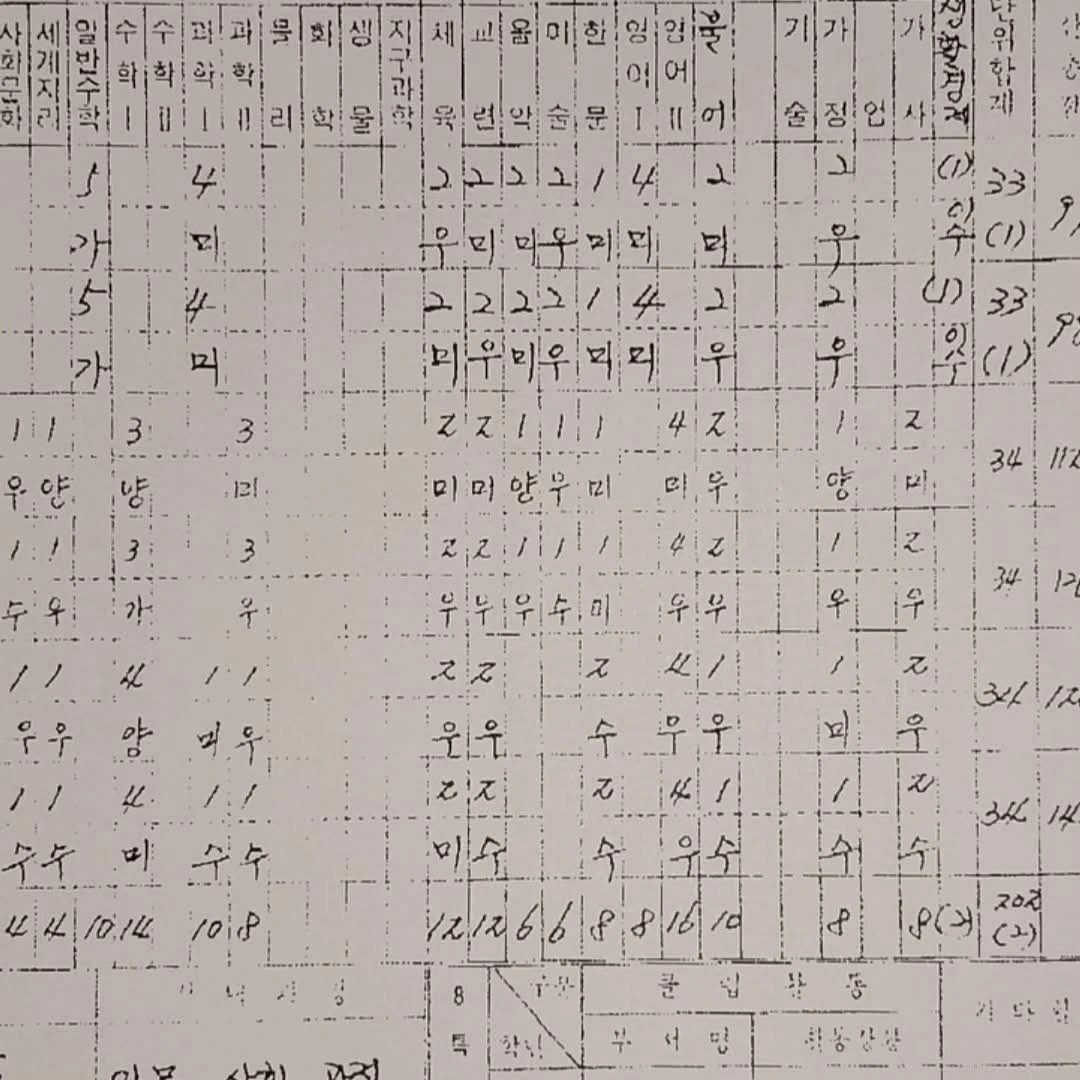 사회문화 세계지리 일반수학 수학I 수학II 과학I 과학II 물리 화학 생물 지구과학 체육 교련 음악 미술 한문 영어I 영어II 불어 기술 가정 가사 단위합계
5 4 2 2 2 2 1 4 2 2 (1) 33
가 미 우 미 미 우 미 미 미 우 이수 (1)
5 4 2 2 2 2 1 4 2 2 (1) 33
가 미 미 우 미 우 미 미 우 우 이수 (1)
1 1 3 3 2 2 1 1 1 4 2 1 2 34
우 양 양 미 미 미 양 우 미 미 우 양 미
1 1 3 3 2 2 1 1 1 4 2 1 2 34
수 우 가 우 우 우 우 수 미 우 우 우 우
1 1 4 1 1 2 2 2 4 1 1 2 34
우 우 양 미 우 우 우 수 우 우 미 우
1 1 4 1 1 2 2 2 4 1 1 2 34
수 수 미 수 수 미 수 수 우 수 수 수
4 4 10 14 10 8 12 12 6 6 8 8 16 10 8 8 (2) 202 (2)
8 구분 클럽활동
특 부서명 활동상황